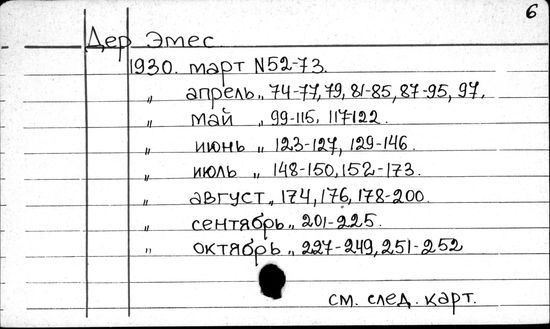 6
Дер Эмес
1930. март N52-73.
„ апрель „ 74-77, 79, 81-85, 87-95, 97,
„ май „ 99-115, 117-122
„ июнь „ 123-127, 129-146.
„ июль „ 148-150, 152-173.
„ август „ 174, 176, 178-200.
„ сентябрь „ 201-225.
„ октябрь „ 227-249, 251-252
см. след. карт.